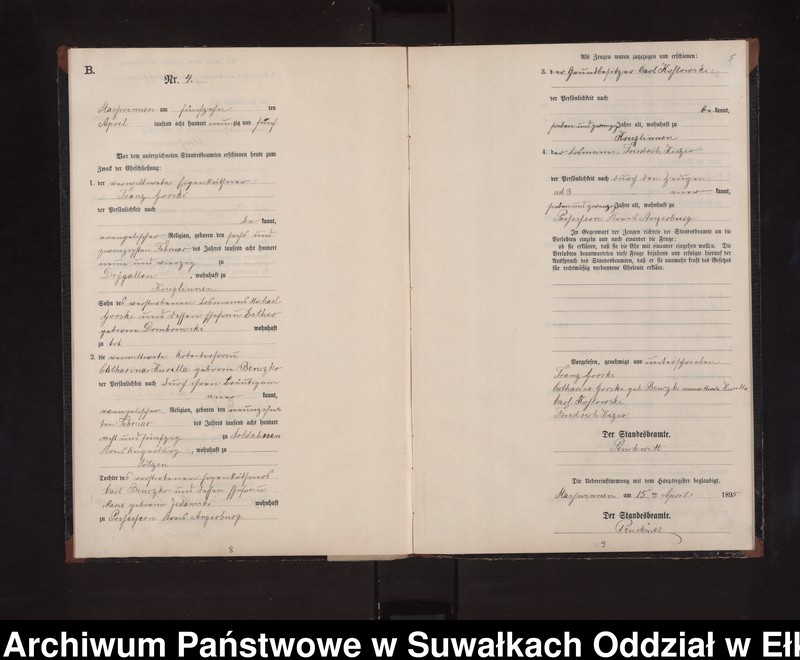 B.
Nr. 4.
am fünfzehn ten
April tausend acht hundert neunzig und fünf
Vor dem unterzeichneten Standesbeamten erschienen heute zum
Zweck der Eheschließung:
1. der verwittwete Eigenkäthner
Franz Gorski
der Persönlichkeit nach
be kannt,
evangelischer Religion, geboren den sechs und
zwanzigsten Februar des Jahres tausend acht hundert
neun und vierzig zu
, wohnhaft zu
Konglinnen
Sohn des verstorbenen Losmanns Michael
Gorski und dessen Ehefrau Esther
geborene Dombrowski wohnhaft
zu
2. die verwittwete Arbeiterfrau
Catharina Kurella geborene Benczko
der Persönlichkeit nach durch ihren Bräutigam
aner kannt,
evangelischer Religion, geboren den neunzehn
ten Februar des Jahres tausend acht hundert
acht und fünfzig zu Soldahnen
Kreis Angerburg, wohnhaft zu
Tochter des verstorbenen Eigenkäthners
Carl Benczko und dessen Ehefrau
geborene wohnhaft
zu Possessern Kreis Angerburg
8
Als Zeugen waren zugezogen und erschienen:
3. der Grundbesitzer Carl Koslowski
der Persönlichkeit nach
be kannt,
sieben und zwanzig Jahre alt, wohnhaft zu
Konglinnen
4. der Losmann Friedrich
der Persönlichkeit nach durch den Zeugen
ad 3 aner kannt,
sieben und zwanzig Jahre alt, wohnhaft zu
Possessern Kreis Angerburg
In Gegenwart der Zeugen richtete der Standesbeamte an die
Verlobten einzeln und nach einander die Frage:
ob sie erklären, daß sie die Ehe mit einander eingehen wollen. Die
Verlobten beantworteten diese Frage bejahend und erfolgte hierauf der
Ausspruch des Standesbeamten, daß er sie nunmehr kraft des Gesetzes
für rechtmäßig verbundene Eheleute erkläre.
Vorgelesen, genehmigt und unterschrieben
Franz Gorski
Catharina Gorski geb. Benczk Kurella
Carl Koslowski
Friedrich
Der Standesbeamte.
Die Uebereinstimmung mit dem Hauptregister beglaubigt.
am 15. ten April 1895
Der Standesbeamte.
9
Archiwum Państwowe w Suwałkach Oddział w Ełk